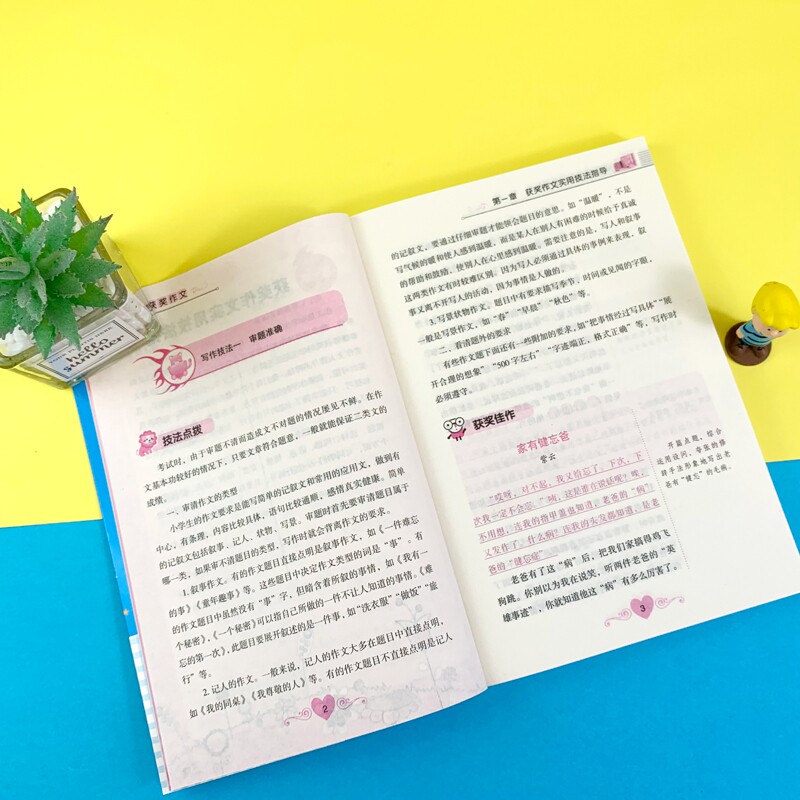 hello
summer
获奖作文
写作技法一 审题准确
技法点拨
考试时，由于审题不清而造成文不对题的情况屡见不鲜。在作
文基本功较好的情况下，只要文章符合题意，一般就能保证二类文的
成绩。
一、审请作文的类型
小学生的作文要求是能写简单的记叙文和常用的应用文，做到有
中心，有条理，内容比较具体，语句比较通顺，感情真实健康。简单
的记叙文包括叙事、记人、状物、写景。审题时首先要审请题目属于
哪一类，如果审不请题目的类型，写作时就会背离作文的要求。
1.叙事作文。有的作文题目直接点明是叙事作文，如《一件难忘
的事》《童年趣事》等。这些题目中决定作文类型的词是“事”。有
的作文题目中虽然没有“事”字，但暗含着所叙的事情，如《我有一
个秘密》，《一个秘密》可以指自己所做的一件不让人知道的事情。《难
忘的第一次》，此题目要展开叙述的是一件事，如“洗衣服”“做饭”“旅
行”等。
2.记人的作文。一般来说，记人的作文大多在题目中直接点明，
如《我的同桌》《我尊敬的人》等。有的作文题目不直接点明是记人
2
第一章 获奖作文实用技法指导
的记叙文，要通过仔细审题才能领会题目的意思。如“温暖”，不是
写气候的暖和使人感到温暖，而是某人在别人有困难的时候给予真诚
的帮助和鼓励，使别人在心里感到温暖。需要注意的是，写人和叙事
这两类作文有时较难区别。因为写人必须通过具体的事例来表现，叙
事又离不开写人的活动，因为事情是人做的。
3.写景状物作文。题目中有要求描写季节，时间或见闻的字眼，
一般是写景作文，如“春”“早晨”“秋色”等。
二、看请题外的要求
有些作文题下面还有一些附加的要求，如“把事情经过写具体”“展
开合理的想象”“500字左右”“字迹端正、格式正确”等，写作时
必须遵守。
获奖佳作
家有健忘爸
紫云
“哎呀，对不起，我又给忘了，下次，下
次我一定不会忘。”咦，这是谁在说话呢？咳，
不用想，连我的指甲盖也知道，老爸的“病”
又发作了。什么病？连我的头发都知道，是老
爸的“健忘症”。
老爸有了这“病”后，把我们家搞得鸡飞
狗跳。你别以为我在说笑，听两件老爸的“英
雄事迹”，你就知道他这“病”有多么厉害了。
开篇点题，综合
运用设问、夸张的修
辞手法形象地写出老
爸有“健忘”的毛病。
3